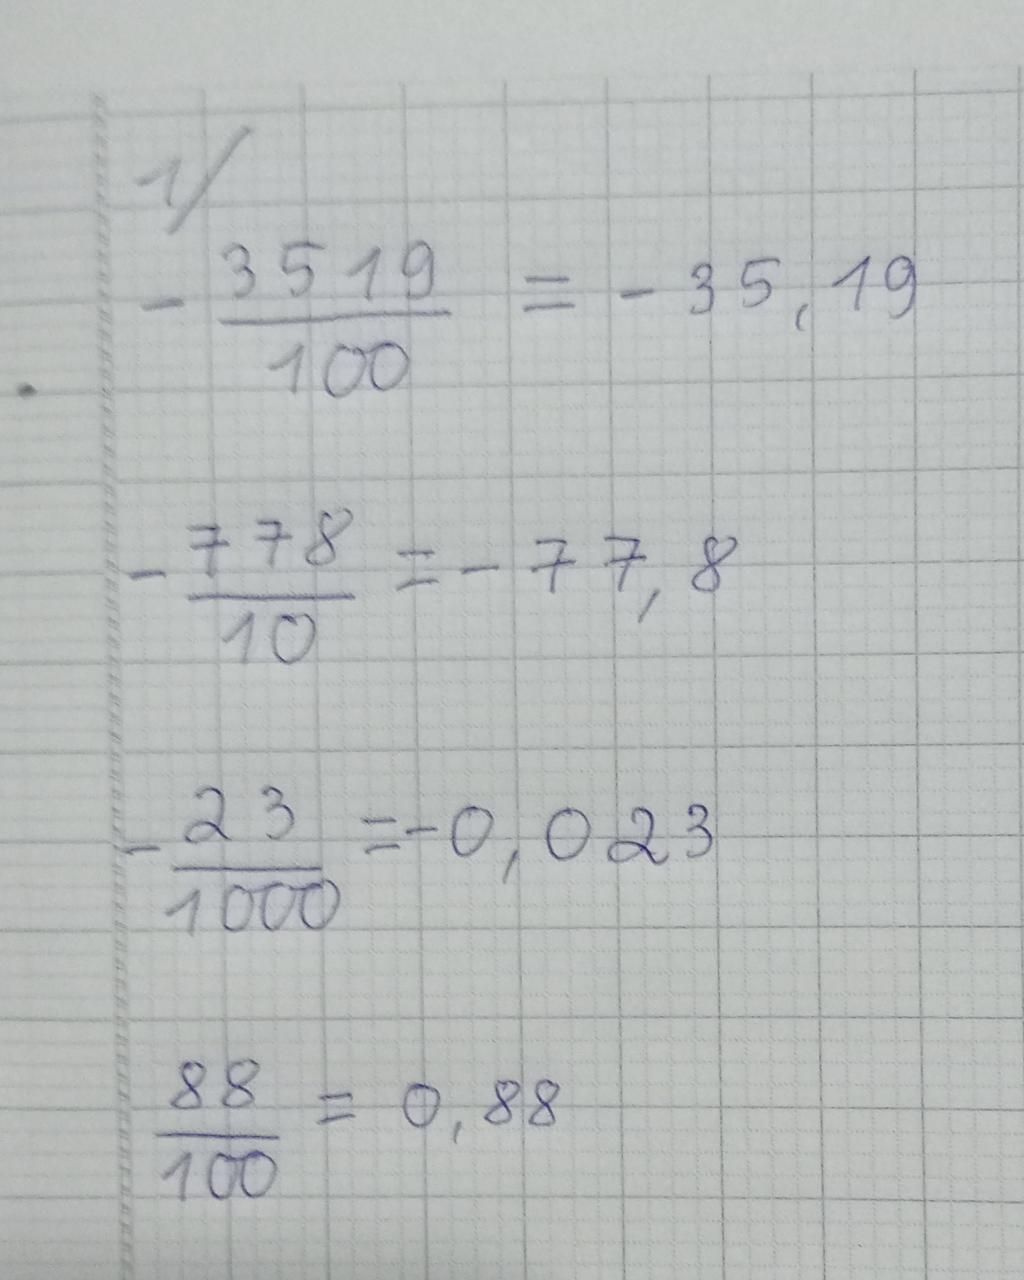 1/
- 3519/100 = - 35,19
- 778/10 = - 77,8
- 23/1000 = - 0,023
88/100 = 0,88